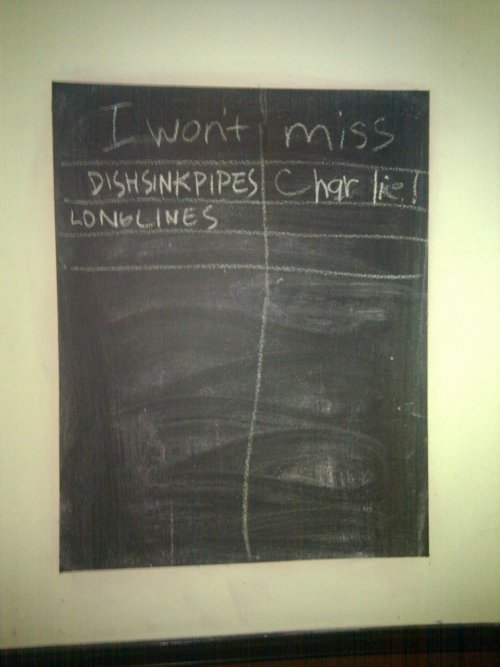 I won't miss
DISHSINKPIPES Charlie!
LONGLINES